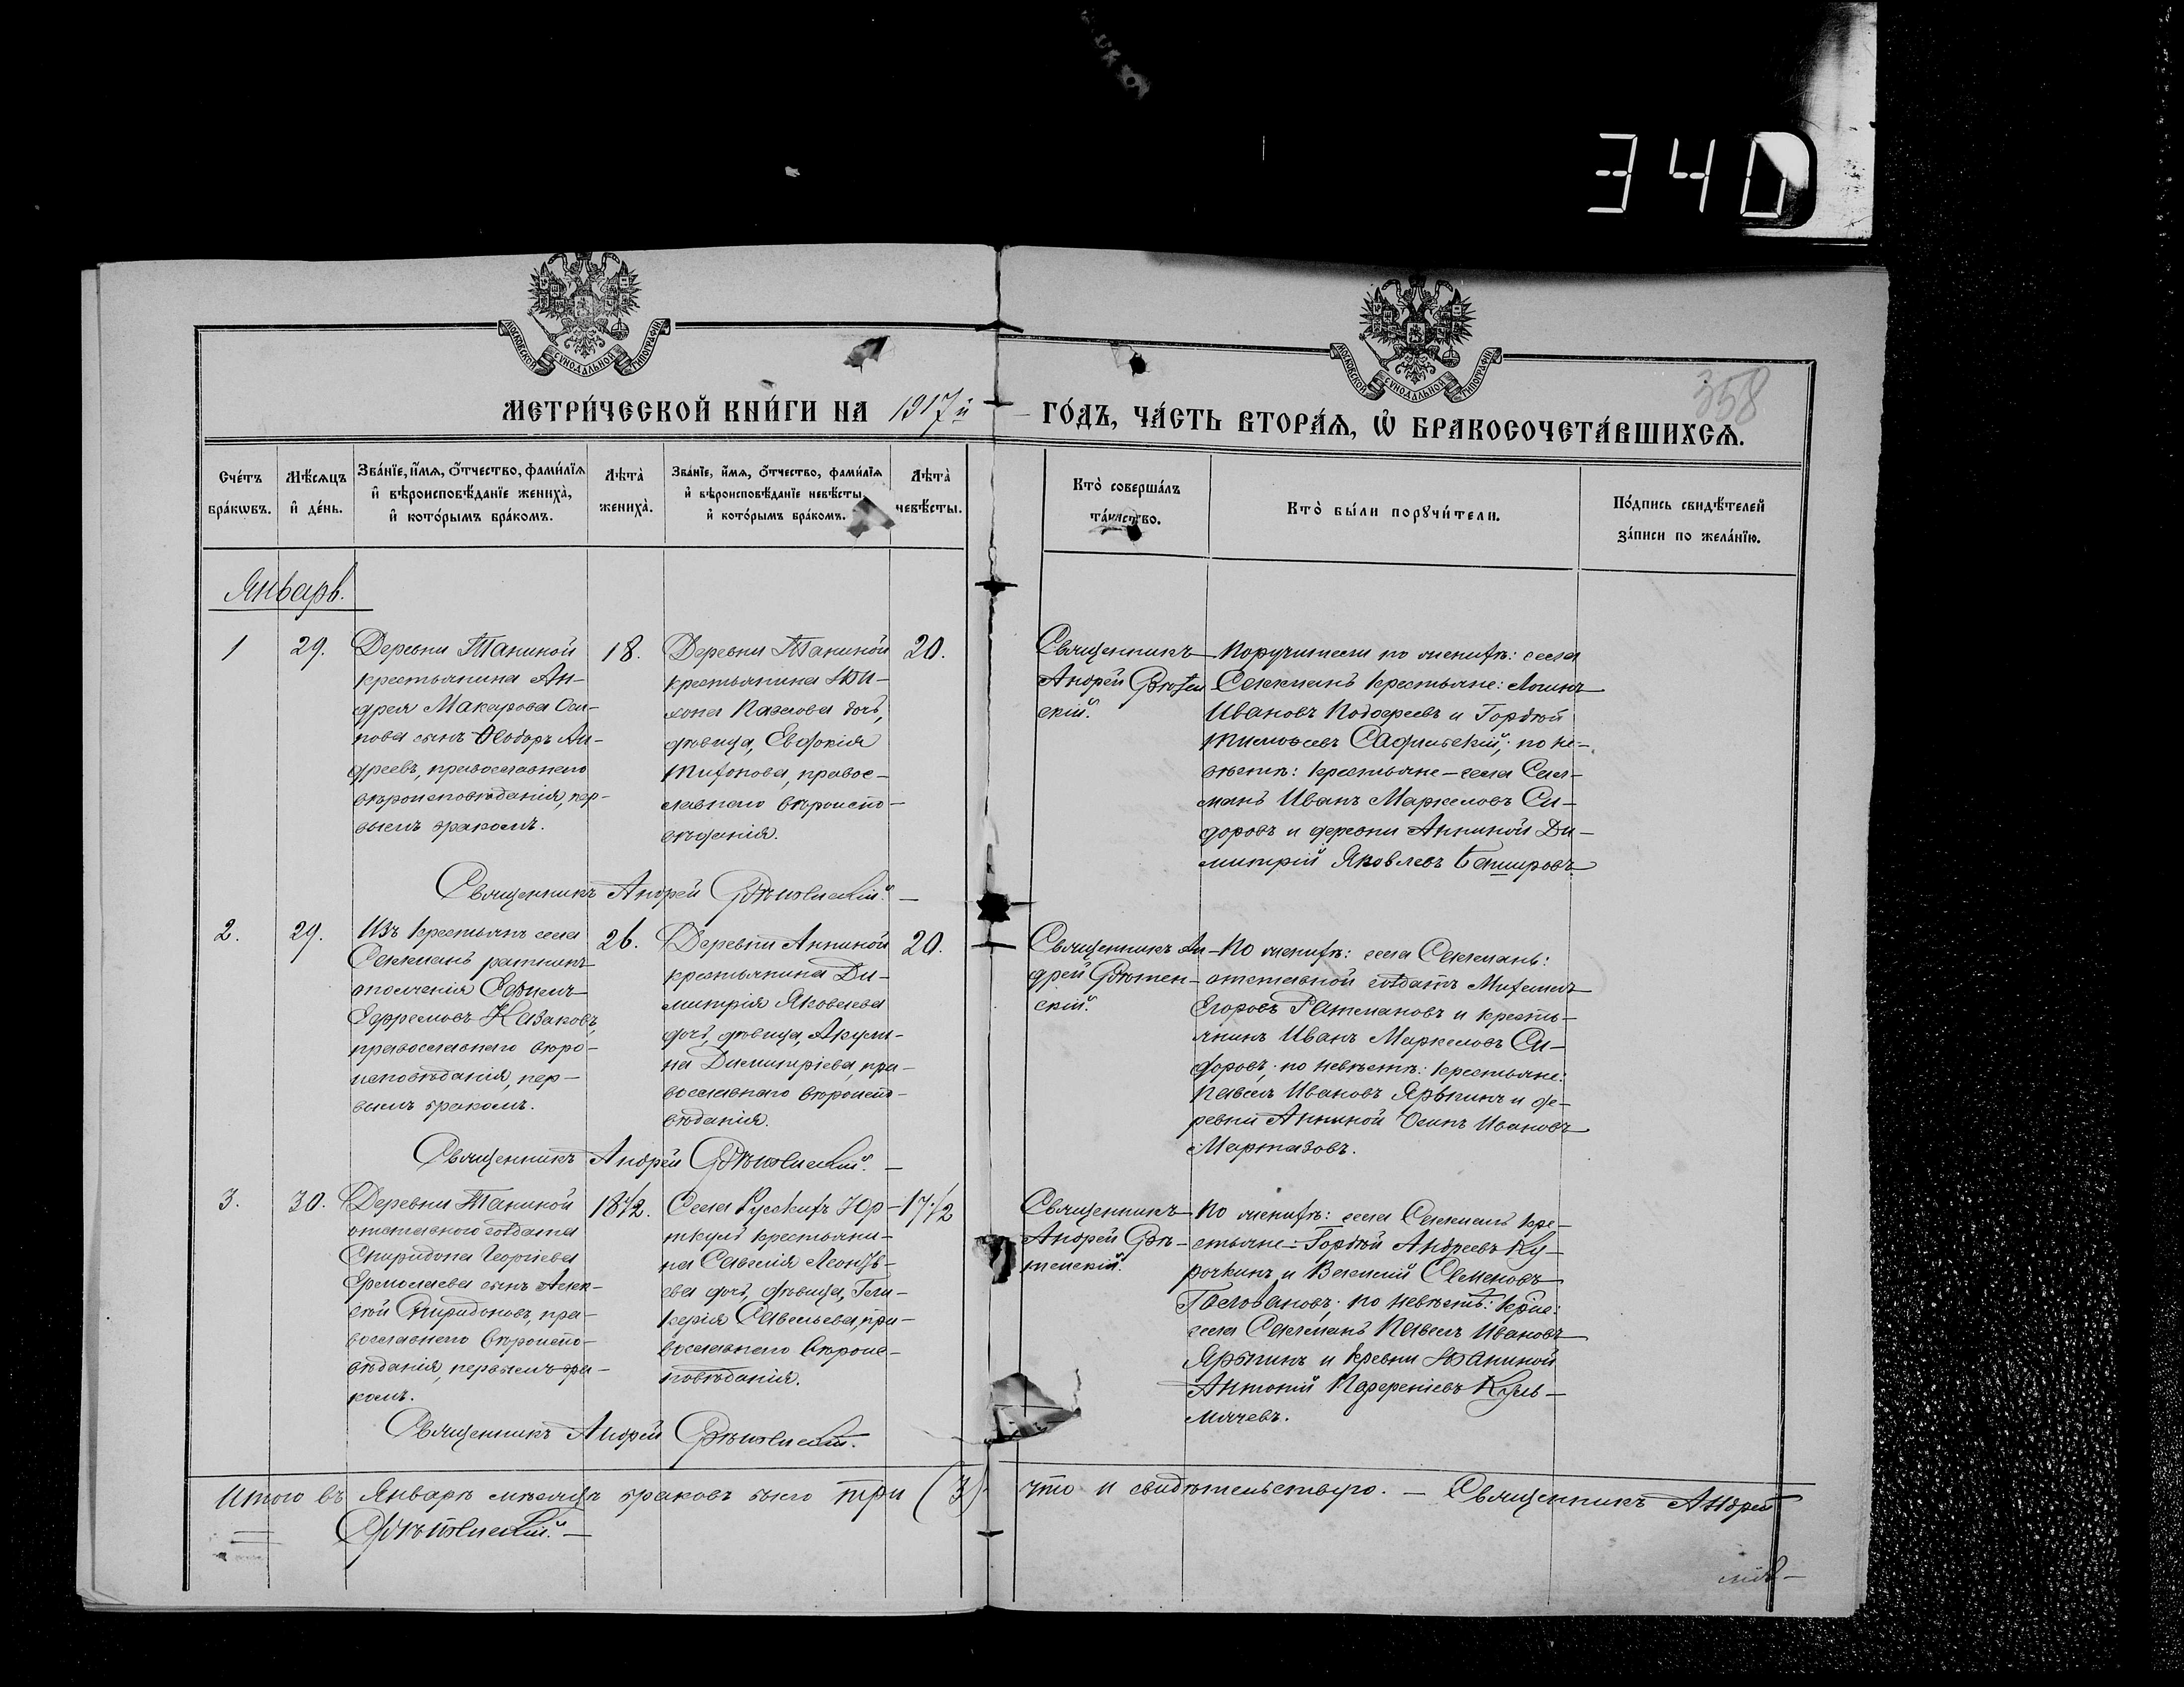 340
МОСКОВСКОЙ СѴНОДАЛЬНОЙ ТИПОГРАФІИ
МОСКОВСКОЙ СѴНОДАЛЬНОЙ ТИПОГРАФІИ
358
МЕТРИ́ЧЕСКОЙ КНИ́ГИ НА 1917й
ГО́ДЪ, ЧА́СТЬ ВТОРА́Ѧ, Ѽ БРАКОСОЧЕТА́ВШИХСѦ.
Сче́тъ бра́кѡвъ.
Мѣ́сѧцъ и҆ де́нь.
Зва́нїе, и҆́мѧ, ѻ҆́тчество, фами́лїѧ
и҆ вѣроисповѣ́данїе жениха̀,
и҆ кото́рымъ бра́комъ.
Лѣта̀ жениха̀.
Зва́нїе, и҆́мѧ, ѻ҆́тчество, фами́лїѧ
и҆ вѣроисповѣ́данїе невѣ́сты,
и҆ кото́рымъ бра́комъ.
Лѣта̀ невѣ́сты.
Кто̀ соверша́лъ
та́инство.
Кто̀ бы́ли порꙋчи́тели.
По́дпись свидѣ́телей
за́писи по жела́нїю.
Январь.
1
29.
Деревни
крестьянина Ан-
дрея Макарова Оси-
пова сынъ Ѳеодоръ Ан-
дреевъ, православнаго
вѣроисповѣданія, пер-
вымъ бракомъ.
18.
Деревни
крестьянина Ти-
хона Павлова дочь,
дѣвица, Евдокія
Тихонова, правос-
лавнаго вѣроиспо-
вѣданія.
20.
Священникъ
Андрей
скій.
Поручители по женихѣ: села
крестьяне: Логинъ
Ивановъ и Гордѣй
Тимоѳеевъ по не-
вѣстѣ: крестьяне села
Иванъ Маркеловъ Си-
доровъ и деревни Анкиной Ди-
митрій Яковлевъ Башировъ
Священникъ Андрей
2.
29.
Изъ крестьянъ села
ратникъ
ополченія Ефимъ
Ефремовъ Казаковъ,
православнаго вѣро-
исповѣданія, пер-
вымъ бракомъ.
26.
Деревни Анкиной
крестьянина Ди-
митрія Яковлева
дочь, дѣвица, Акули-
на Димитріева, пра-
вославнаго вѣроиспо-
вѣданія.
20.
Священникъ Ан-
дрей
скій.
По женихѣ: села
отставной солдатъ Михаилъ
Егоровъ и кресть-
янинъ Иванъ Маркеловъ Си-
доровъ; по невѣстѣ: крестьяне:
Павелъ Ивановъ Ярыгинъ и де-
ревни Анкиной Осипъ Ивановъ
Священникъ Андрей
3.
30.
Деревни
отставного солдата
Спиридона Георгіева
Ермолаева сынъ Алек-
сѣй Спиридоновъ, пра-
вославнаго вѣроиспо-
вѣданія, первымъ бра-
комъ.
18 1/2.
Села Русскихъ Юр-
ткуль крестьяни-
на Савелія Леонть-
ева дочь, дѣвица, Гли-
керія Савельева, пра-
вославнаго вѣроис-
повѣданія.
17 1/2
Священникъ
Андрей
тенскій.
По женихѣ: села кре-
стьяне: Гордѣй Андреевъ Ку-
рочкинъ и Василій Семеновъ
по невѣстѣ:
села Павелъ Ивановъ
Ярыгинъ и деревни
Антоній Парфеніевъ Кузь-
мичевъ.
Священникъ Андрей
Итого въ Январѣ мѣсяцѣ браковъ было три (3)
что и свидѣтельствую. — Священникъ Андрей